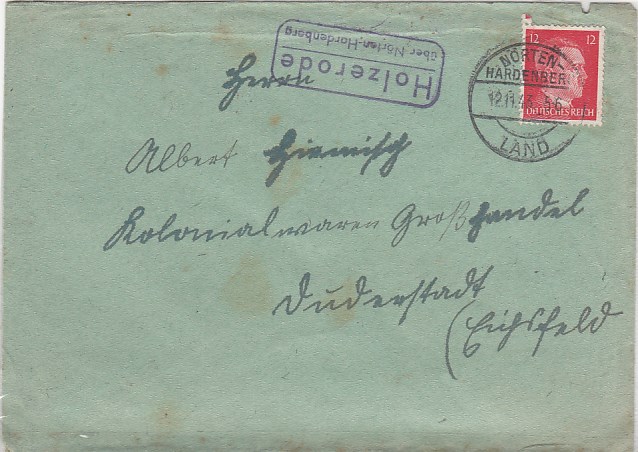 Holzerode
über Nörten-Hardenberg
12 12
DEUTSCHES REICH
NÖRTEN-
HARDENBERG
12.11.43
LAND
Herrn
Albert
Kolonialwaren Großhandel
Duderstadt
(Eichsfeld